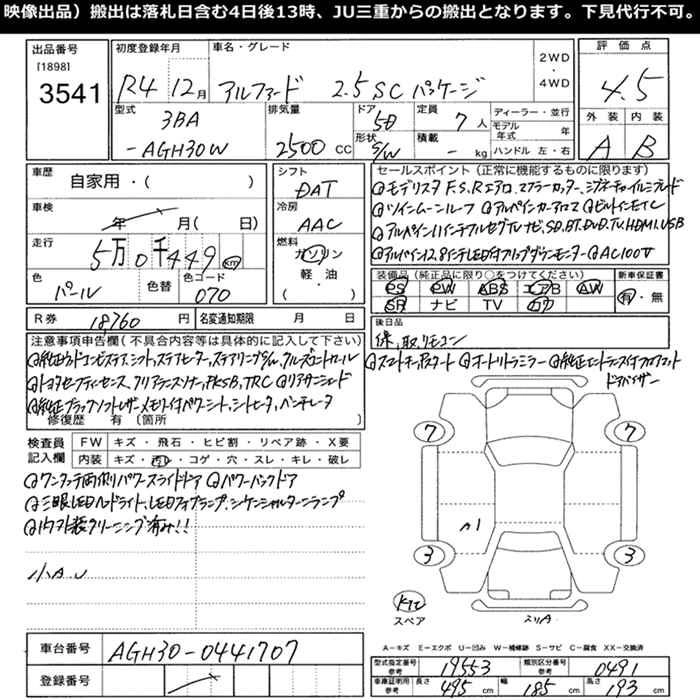 映像出品）搬出は落札日含む4日後13時、JU三重からの搬出となります。下見代行不可。
出品番号 初度登録年月 車名・グレード 2WD ・ 4WD 評価点
[1898]
3541 R4 12月 アルファード 2.5 SC パッケージ 4.5
型式 排気量 ドア 定員 ディーラー・並行 外装 内装
3BA 5D 7人 モデル年式 年
-AGH30W 2500 CC 形状 S/W 積載 - kg ハンドル 左・右 A B
車歴 シフト セールスポイント（正常に機能するものに限る）
自家用・( ) DAT ◎モデリスタF.S.Rエアロ、マフラーカッター、シグネチャーイルミブレード
車検 冷房 ◎ツインムーンルーフ ◎アルパインカーアロマ ◎ビルトインETC
年 月( 日) AAC ◎アルパイン11インチフルセグTVナビ、SD.BT.DVD.TV.HDMI.USB
走行 燃料 ◎アルパイン12.8インチLED付フリップダウンモニター ◎AC100V
5万0千449 km ガソリン
軽油
( )
色 色替 色コード 装備品（純正品に限り○をつけてください） 新車保証書
パール 070 PS PW ABS エアB AW 有・無
SR ナビ TV カワ
R券 18760円 名変通知期限 月 日 後日品
保、取、リモコン
注意事項申告欄(不具合内容等は具体的に記入して下さい) ◎スマートキープッシュスタート ◎オートリトラミラー ◎純正エントランス付フロアマット
ドアバイザー
◎純正ウッドコンビステアス、シフト、ステアヒーター、ステアリングSW、クルーズコントロール
◎トヨタセーフティセンス、クリアランスソナー、PKSB、TRC ◎リアサンシェード
◎純正ブラックソフトレザー、メモリー付パワーシート、シートヒータ、ベンチレータ
修復歴 有 〔箇所 〕
検査員 FW キズ・飛石・ヒビ割・リペア跡・X要
記入欄 内装 キズ・汚レ・コゲ・穴・スレ・キレ・破レ
◎ワンタッチ両側パワースライドドア ◎パワーバックドア
◎三眼LEDヘッドライト、LEDフォグランプ、シーケンシャルターンランプ
◎内外装クリーニング済み!!
小A.U
7 7
A1
3 3
キTE
スペア スリA
A－キズ E－エクボ U－凹み W－補修跡 S－サビ C－腐食 XX－交換済
車台番号 AGH30-0441707
登録番号
型式指定番号 参考 19553 類別区分番号 参考 0491
車庫証明用 参考 長さ 495 cm 幅 185 cm 高さ 193 cm